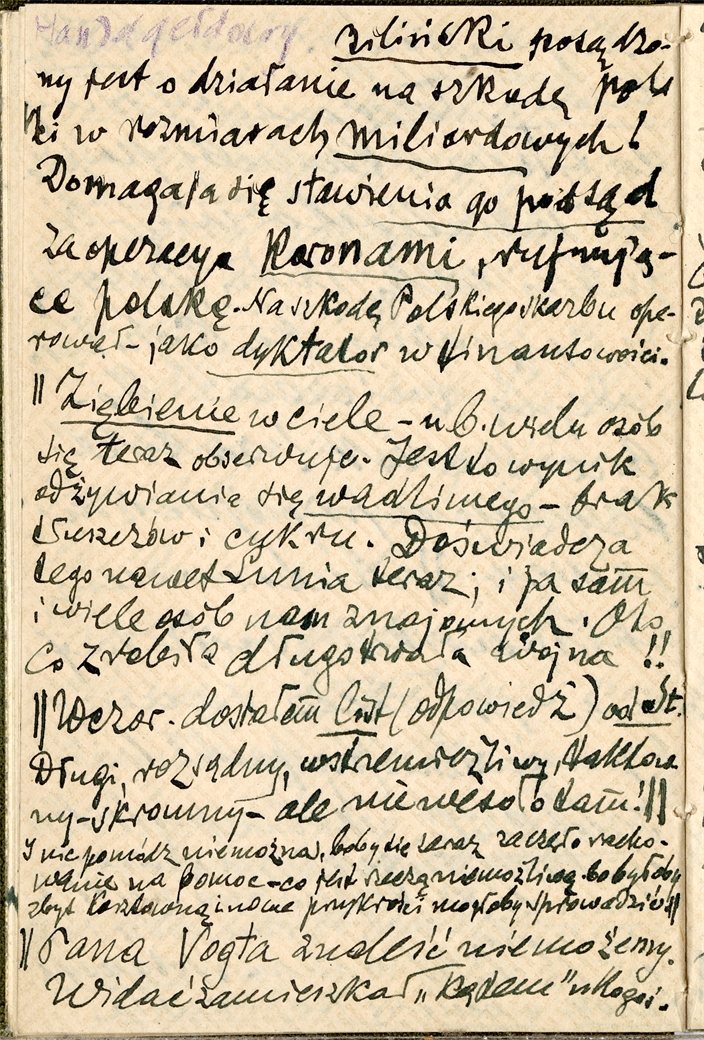 Handel giełdowy. Biliński posądzo-
ny jest o działanie na szkodę Pols
ki w rozmiarach miliardowych!
Domagają się stawienia go pod sąd
za operacye Koronami, rujnują-
ce polskę. Na szkodę Polskiego skarbu ope-
rował - jako dyktator w finansowości.
|| Ziębienie w ciele - u b. wielu osób
się teraz obserwuje. Jest to wynik
odżywiania się wadliwego - brak
tłuszczów i cukru. Doświadcza
tego nawet Lunia teraz; i ja sam
i wiele osób nam znajomych. Oto,
co zrobiła długotrwała wojna!!
|| Wczor. dostałam list (odpowiedź) od St.
Długi, rozsądny, wstrzemięźliwy, taktow
ny - skromny - ale nie wesoło tam! ||
I nic pomódz niemożna, boby się zaraz zaczęło racho-
wanie na pomoc - co jest rzeczą niemożliwą - bo byłoby
zbyt kosztowną i nowe przykrości mogłoby sprowadzić! ||
|| Pana Vogta znaleść niemożemy.
Widać zamieszkał "kątem" u kogoś.